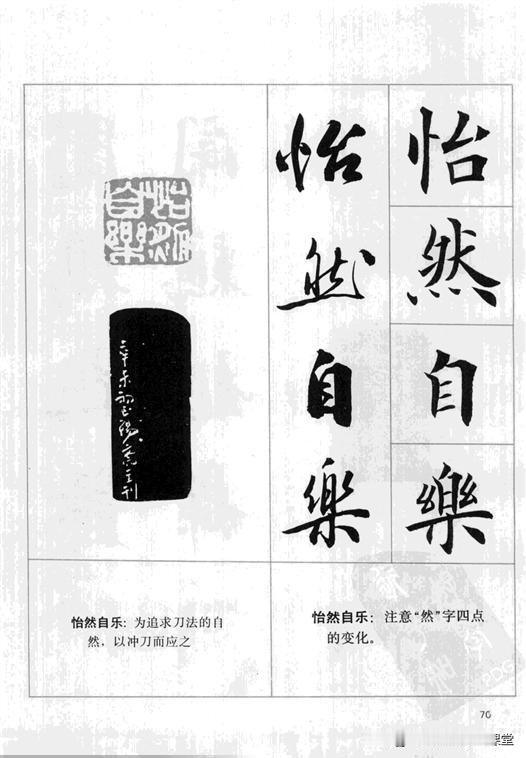 怡然自樂
怡然自樂
怡然自樂
怡然自乐：为追求刀法的自
然，以冲刀而应之
怡然自乐：注意“然”字四点
的变化。
76
课堂